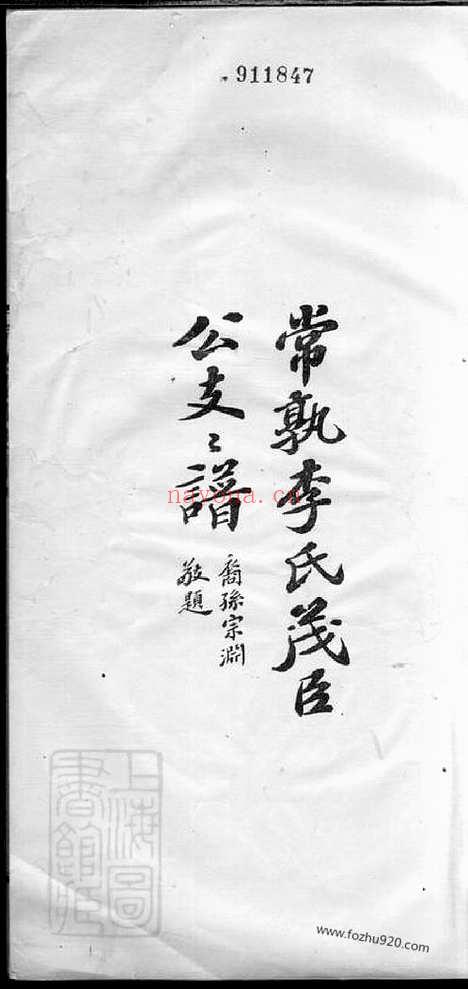 911847
常孰李氏茂臣
公支〻譜
裔孫宗淵
敬題
nayona.cn
上海圖
書館藏
www.fozhu920.com